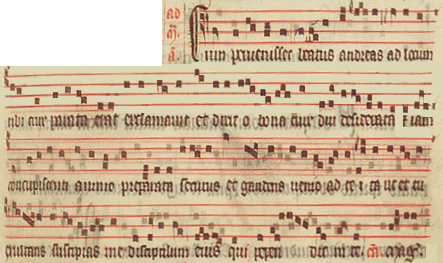 ad m̃. ã. Cum pervenisset beatus andreas ad locum
ubi crux parata erat exclamavit et dixit o bona crux diu desiderata et iam
concupiscenti animo preparata securus et gaudens venio ad te i ta ut et tu
exultans suscipias me discipulum eius qui pepen dit in te. m̃.